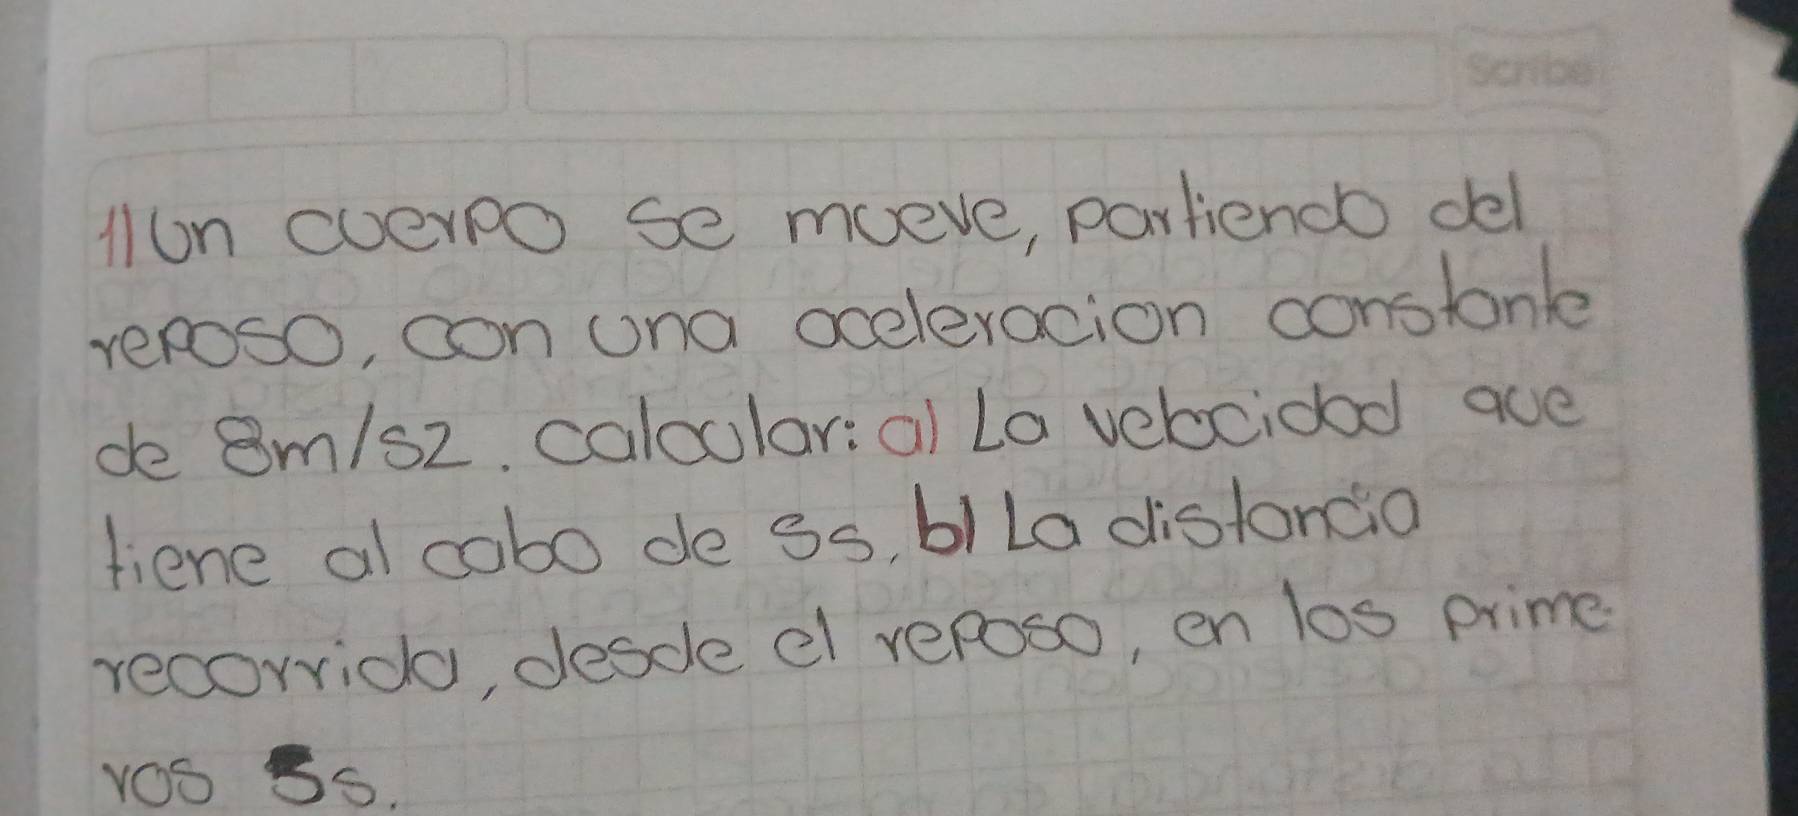 Scribe
1) Un cuerpo se mueve, partiendo del
reposo, con una aceleracion constante
de 8m/s2. calcular: a) La velocidad que
tiene al cabo de 5s, b) La distancia
recorrida, desde el reposo, en los prime
ros 5s.